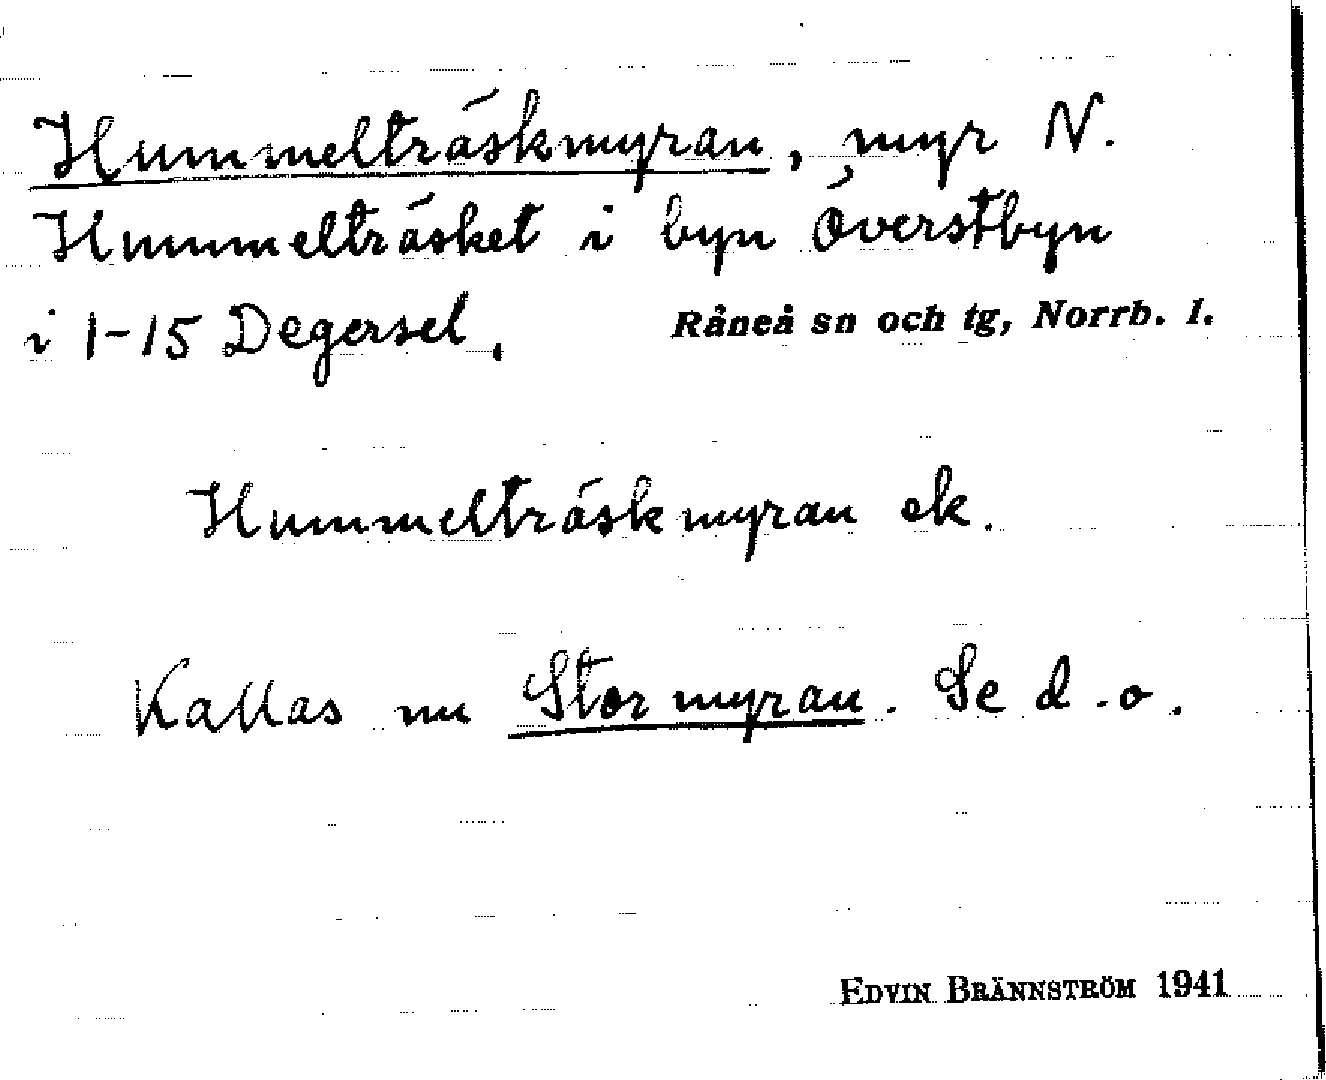 Hummelträskmyran, myr N.
Hummelträsket i byn Överstbyn
i 1-15 Degersel.
Råneå sn och tg, Norrb. l.
Hummelträskmyran ek.
Kallas nu Stormyran. Se d.o.
EDVIN BRÄNNSTRÖM 1941